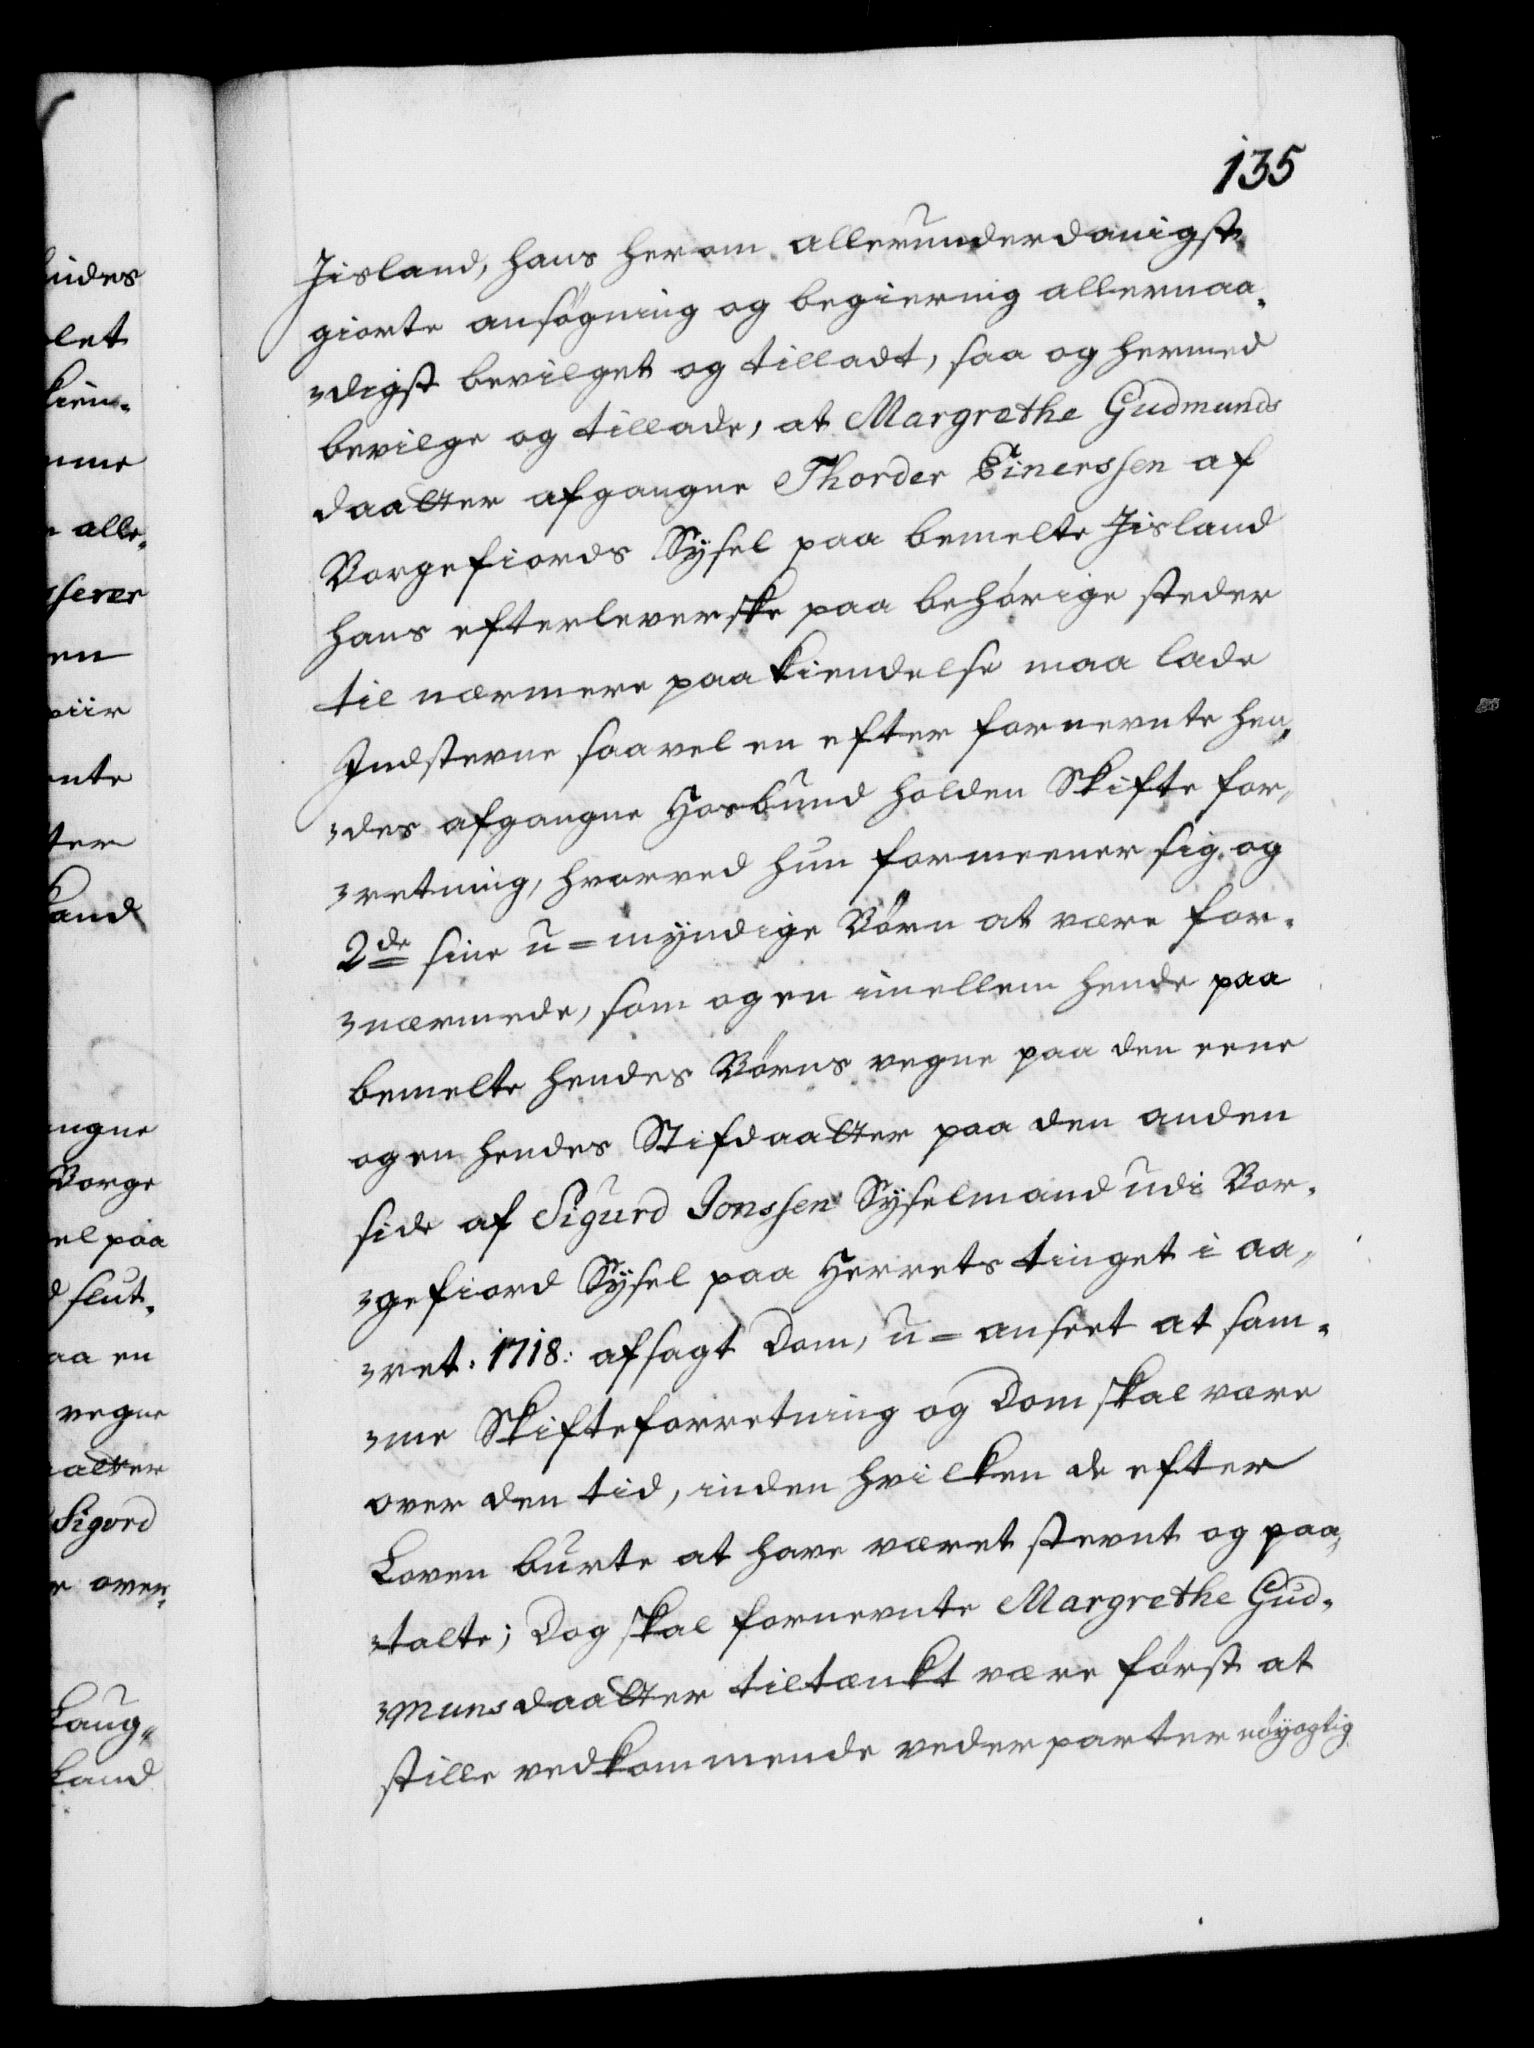 135
Jisland, hans herom allerunderdanigst
giorte ansøgning og begiering allernaa-
digst bevilget og tilladt, saa og hermed
bevilge og tillade, at Margrethe Gudmunds
daatter afgangne Thorder Einerssen af
Borgefiords Sysel paa bemelte Jisland
hans efterleverske paa behørige steder
til nærmere paakiendelse maa lade
Indstevne saavel en efter fornevnte hen-
des afgangne Hosbund holden Skifte for-
retning, hvorved hun formeener sig og
2de sine u-myndige Børn at være for-
nærmede, som og en imellem hende paa
bemelte hendes Børns vegne paa den eene
og en hendes Stifdaatter paa den anden
side af Sigurd Jonssen Sysselmand udi Bor-
gefiord Sysel paa Herrets tinget i aa-
ret. 1718: afsagt Dom, u-anseet at sam-
me Skifteforretning og Dom skal være
over den tid, inden hvilken de efter
Loven burte at have været stevnt og paa-
talte; Dog skal fornevnte Margrethe Gud-
muns daatter tiltænkt være først at
stille vedkommende vederparter nøyagtig
indes
let
kien-
mme
alle-
sserer
en
piir
nte
ter
and
angne
Borge
el paa
slut-
aa en
vegne
alter
Sigvrd
over-
Laug-
Land